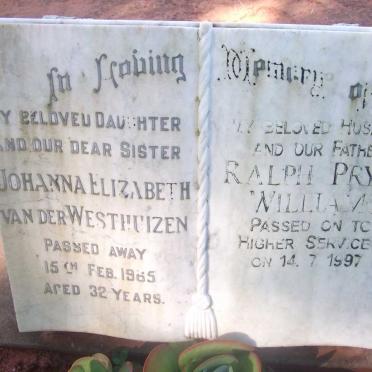 In Loving Memory of
Y BELOVED DAUGHTER
AND OUR DEAR SISTER
JOHANNA ELIZABETH
VAN DER WESTHUIZEN
PASSED AWAY
15TH FEB. 1965
AGED 32 YEARS.
MY BELOVED HUS
AND OUR FATHE
RALPH PRY
WILLIAM
PASSED ON TO
HIGHER SERVICE
ON 14.7.1997